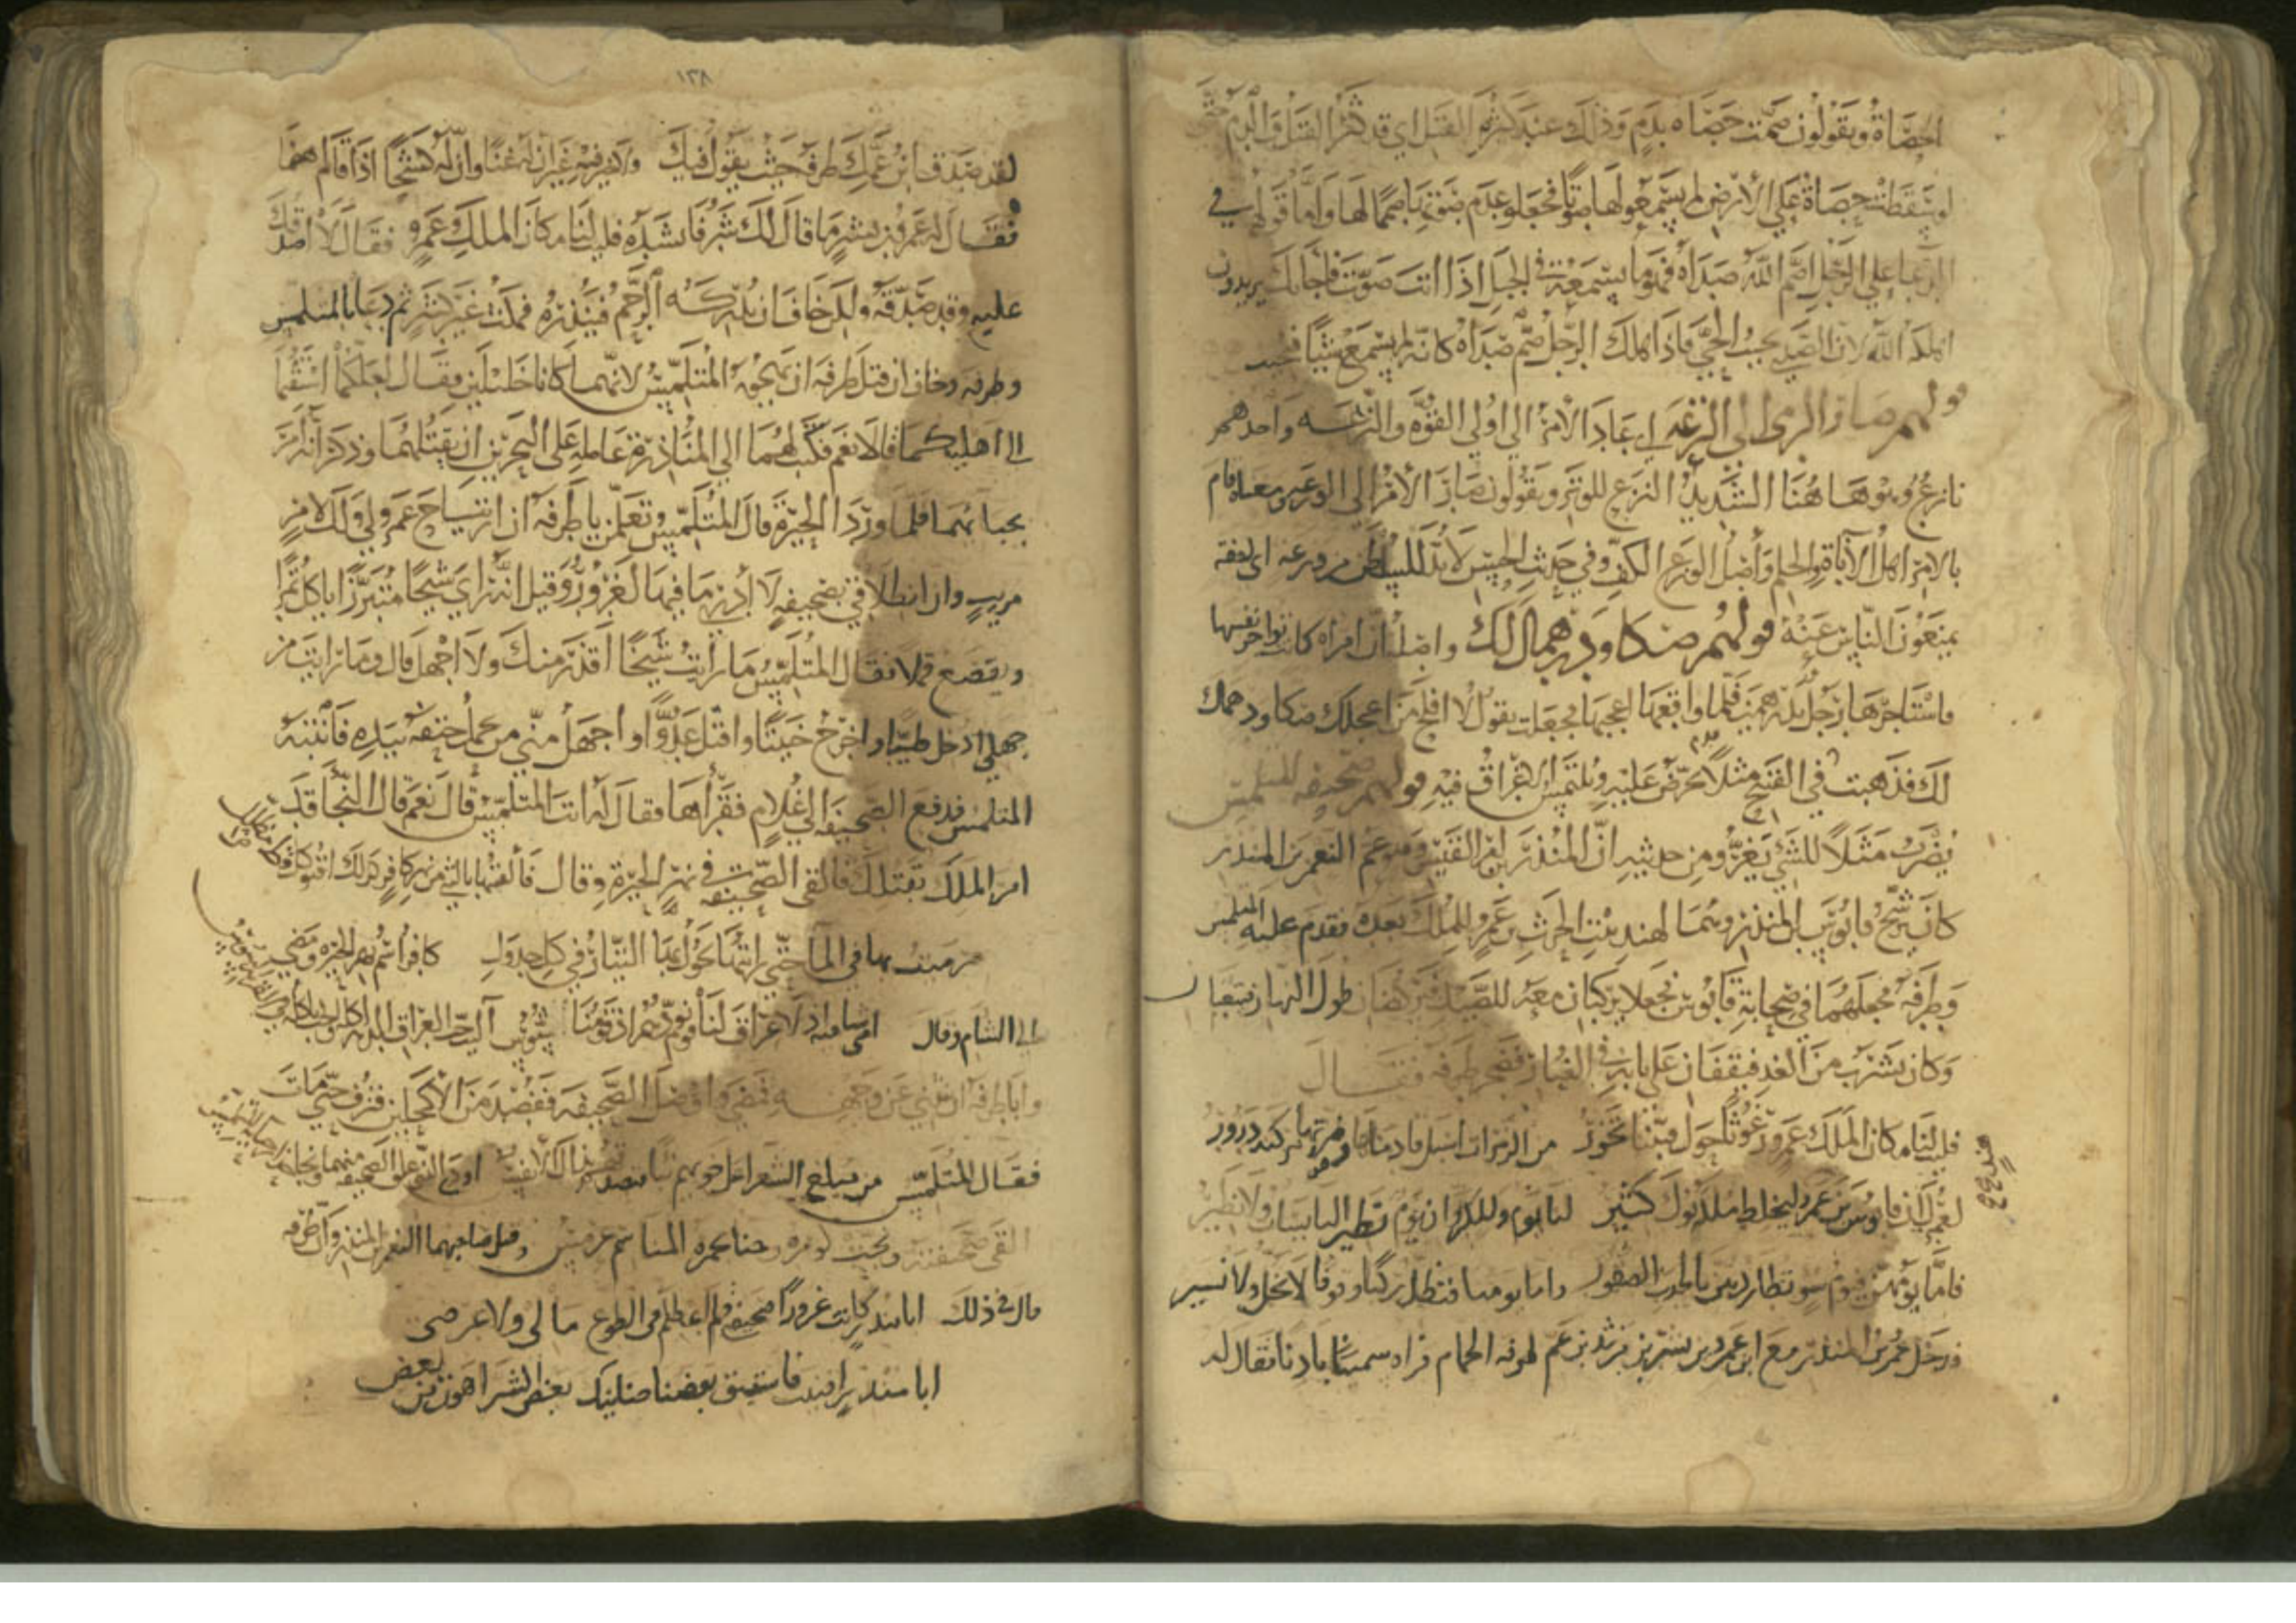 الحصاة ويقولون صمت حصاة بدم وذلك عند كثرة القتل اي قد كثر القتل والدم حتى
لو سقطت حصاة على الأرض لم يسمعوا لها صوتا فجعلو عدم صوتها صمما لها واما قولهم في
الدعا على الرجل اصم الله صداه فهو ما يسمعه في الجبل اذا انت صوت فاجابك يريدون
اهلكه الله لان الصدى يجيب الحي فاذا هلك الرجل صم صداه كانه لم يسمع شيا فيجيب
قولهم صار الرمى الى النزعه اي عاد الأمر الى اولي القوة والنزعه واحدهم
نازع وهو هاهنا الشديد النزع للوتر ويقولون صار الأمر الى الوزعه ومعناه قام
بالامر اهل الأناة والحلم وأصل الوزع الكف وفي حديث الحسن لا بد للسلطان من وزعه اى
يمنعون الناس عنه قولهم صكا ودرهماك لك واصله ان امراة كانت تواجر نفسها
فاستاجرها رجل بدرهمين فلما واقعها اعجبها فجعلت تقول لا افلح من اعجلك صكا ودرهماك
لك فذهبت مثلا في القبيح يحرض عليه ويلتمس الاغراق فيه قولهم صحيفه المتلمس
يضرب مثلا للشي يغر ومن حديثه ان المنذر بن امرا القيس وهو عم النعمن بن المنذر
كان يرشح قابوس بن المنذر وهما لهند بنت الحرث بن عمرو للملك بعده فقدم عليه المتلمس
وطرفه فجعلهما في صحابة قابوس فجعلا يركبان معه للصيد فيركضان طول النهار فيتعبا ن
وكان يشرب من الغد فيقفان على بابه في الغبار فضجر طرفه فقال
فليت لنا مكان الملك عمرو رغوثا حول قبتنا تخور من الزمرات اسبل قادماها وضرتها مركنة درور
لعمرك ان قابوس بن عمرو ليخلط ملكه نوك كثير لنا يوم وللكروان يوم تطير البايسات ولا نطير
فاما يومهن فيوم سو تطاردهن بالحدب الصقور واما يومنا فنظل ركبا وقوفا لا نحل ولا نسير
فدخل عمرو بن المنذر مع ابن عمرو بن بشر بن مرثد بن عم طرفه الحمام فراه سمينا بادنا فقال له
١٣٨
لقد صدق ابن عمك طرفه حيث يقول فيك ولا خير فيه غير ان له غنا وان له كشحا اذا قام اهضما
فقال له عمرو بن بشر ما قال لك شر فانشده فليت لنا مكان الملك عمرو فقال لا اصدقك
عليه وقد صدقه ولكن خاف ان تدركه الرحم فينذره فمكث غير كثير ثم دعا بالمتلمس
وطرفه وخاف ان قتل طرفه ان يهجوه المتلمس لانهما كانا خليلين فقال لعلكما اشتقتما
الى اهليكما قالا نعم فكتب لهما الى المنذر عامله على البحرين ان يقتلهما وذكر انه امر
بحبائهما فلما وردا الحيرة قال المتلمس تعلمن يا طرفه ان ارتياح عمرو لي ولك لامر
مريب وان انطلاقي بصحيفه لا أدري ما فيها لغرور وقيل انه راى شيخا متبرزا ياكل تمرا
ويقصع قملا فقال المتلمس ما رأيت شيخا اقذر منك ولا اجهل قال وما رايت من
جهلي ادخل طيبا واخرج خبيثا واقتل عدوا واجهل مني من يحمل حتفه بيده فانتبه
المتلمس فدفع الصحيفه الى غلام فقرأها فقال له انت المتلمس قال نعم قال النجا فقد
امر الملك بقتلك فالقى الصحيفه في نهر الحيرة وقال فألقيتها بالثني من نهر كافر كذلك اقنو كل قط مضلل
رميت بها في الما حتى رايتها يجول بها التيار في كل جدول كافر اسم نهر الحيرة ومضى
الى الشام وقال امى شامية اذ لا عراق لنا قوم نودهم اذ قومنا شوس
وابا طرفه ان ينثني عن وجهه فمضى واوصل الصحيفه ففصد من الاكحلين فنزف حتى مات
فقال المتلمس من مبلغ الشعرا عن اخويهم نبا فتصدقهم بذاك الانفس اودى الذي علق الصحيفه منهما ونجا
القى صحيفته ونجت كوره
قال في ذلك ابا منذر كانت غرورا صحيفتي فلم اعطكم في الطوع مالي ولا عرضي
ابا منذر افنيت فاستبق بعضنا حنانيك بعض الشر اهون من بعض